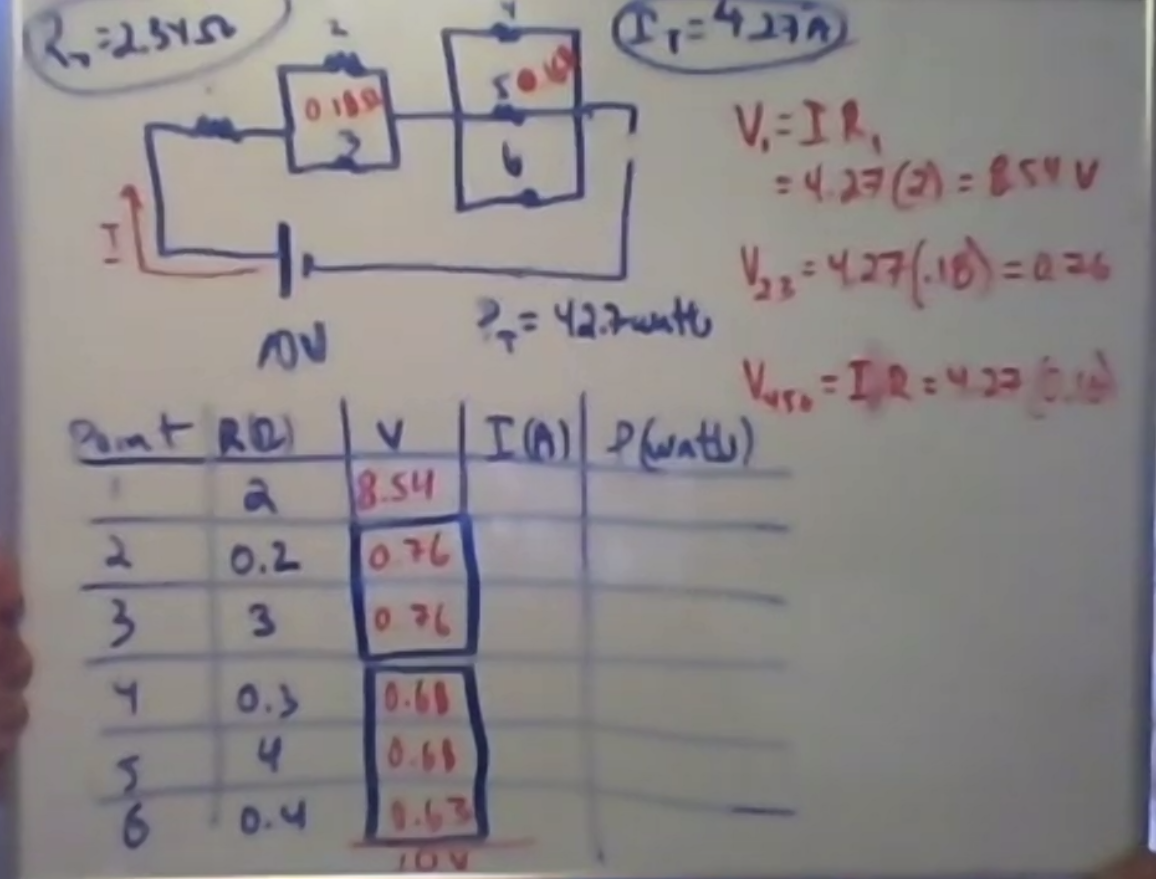 R_T = 2.34Ω
I_T = 4.27A
2
4
0.18Ω
5
3
6
I
10V
P_T = 42.7 watts
V₁ = I R₁
= 4.27(2) = 8.54 V
V₂₃ = 4.27(.18) = 0.76
V₄₅₆ = I R = 4.27
Point R(Ω) V I(A) P(watts)
1 2 8.54
2 0.2 0.76
3 3 0.76
4 0.3 0.68
5 4 0.68
6 0.4
10V